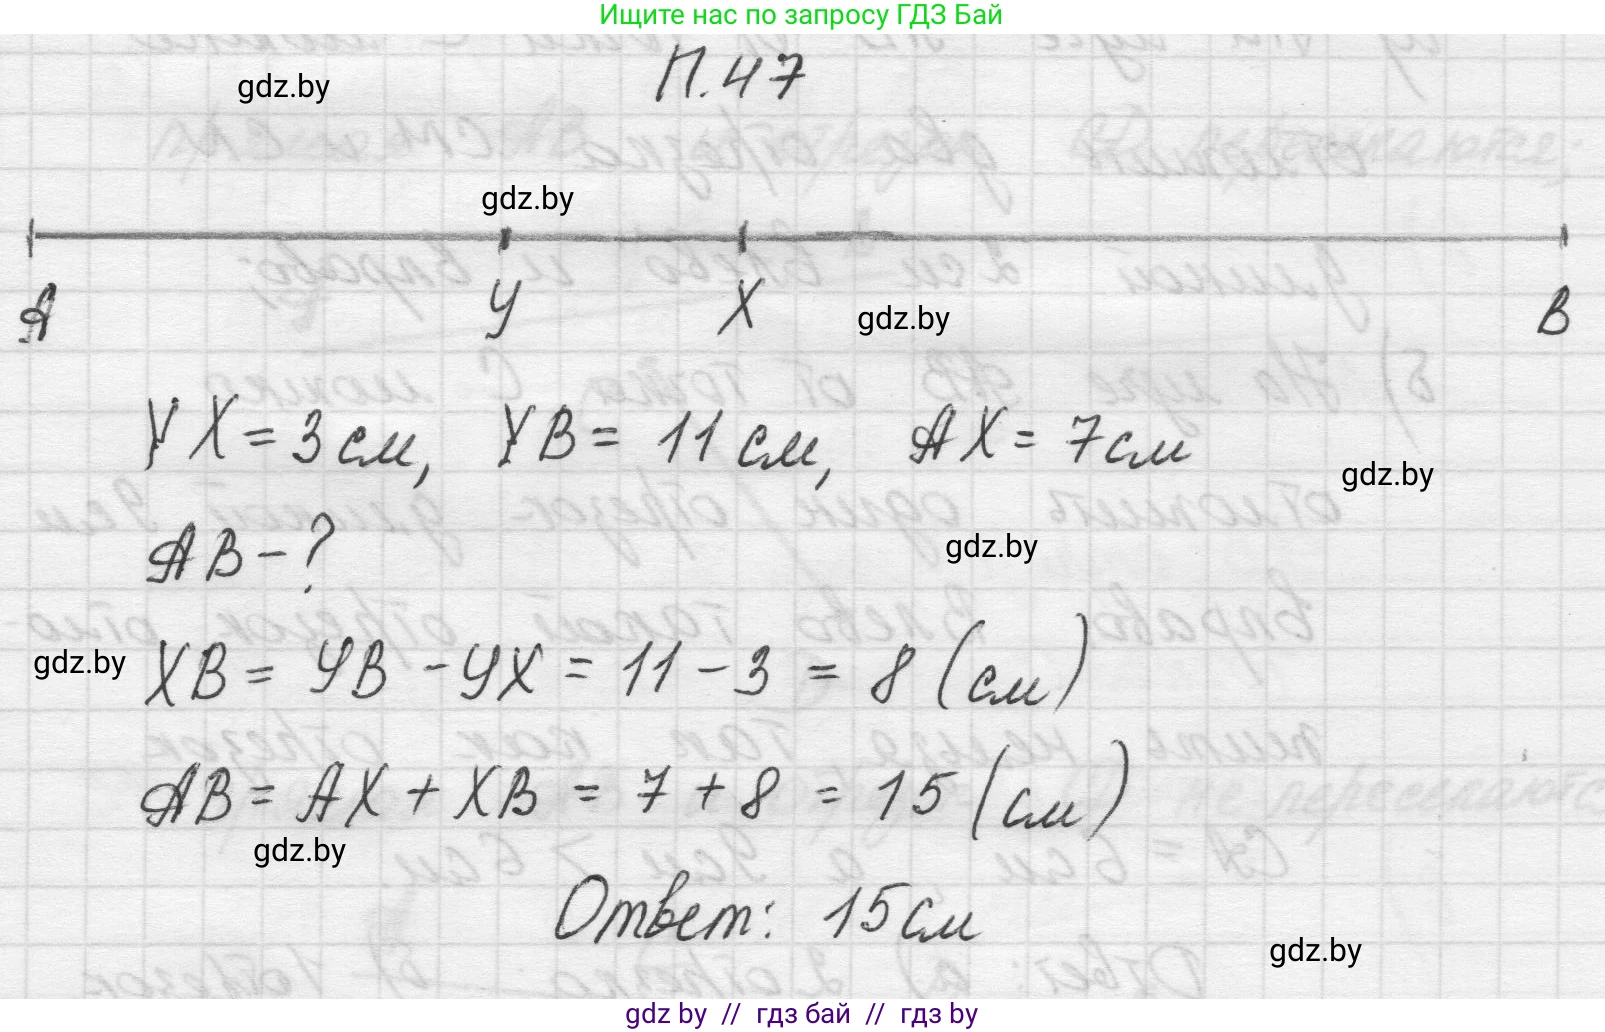 Ищите нас по запросу ГДЗ Бай
П.47
gdz.by
gdz.by
А У Х В
gdz.by
YX = 3 см, YB = 11 см, АХ = 7 см
gdz.by
АВ - ?
gdz.by
gdz.by
ХВ = УВ - УХ = 11 - 3 = 8 (см)
АВ = АХ + ХВ = 7 + 8 = 15 (см)
gdz.by
Ответ: 15 см
gdz.by
gdz by // гдз бай // гдз by